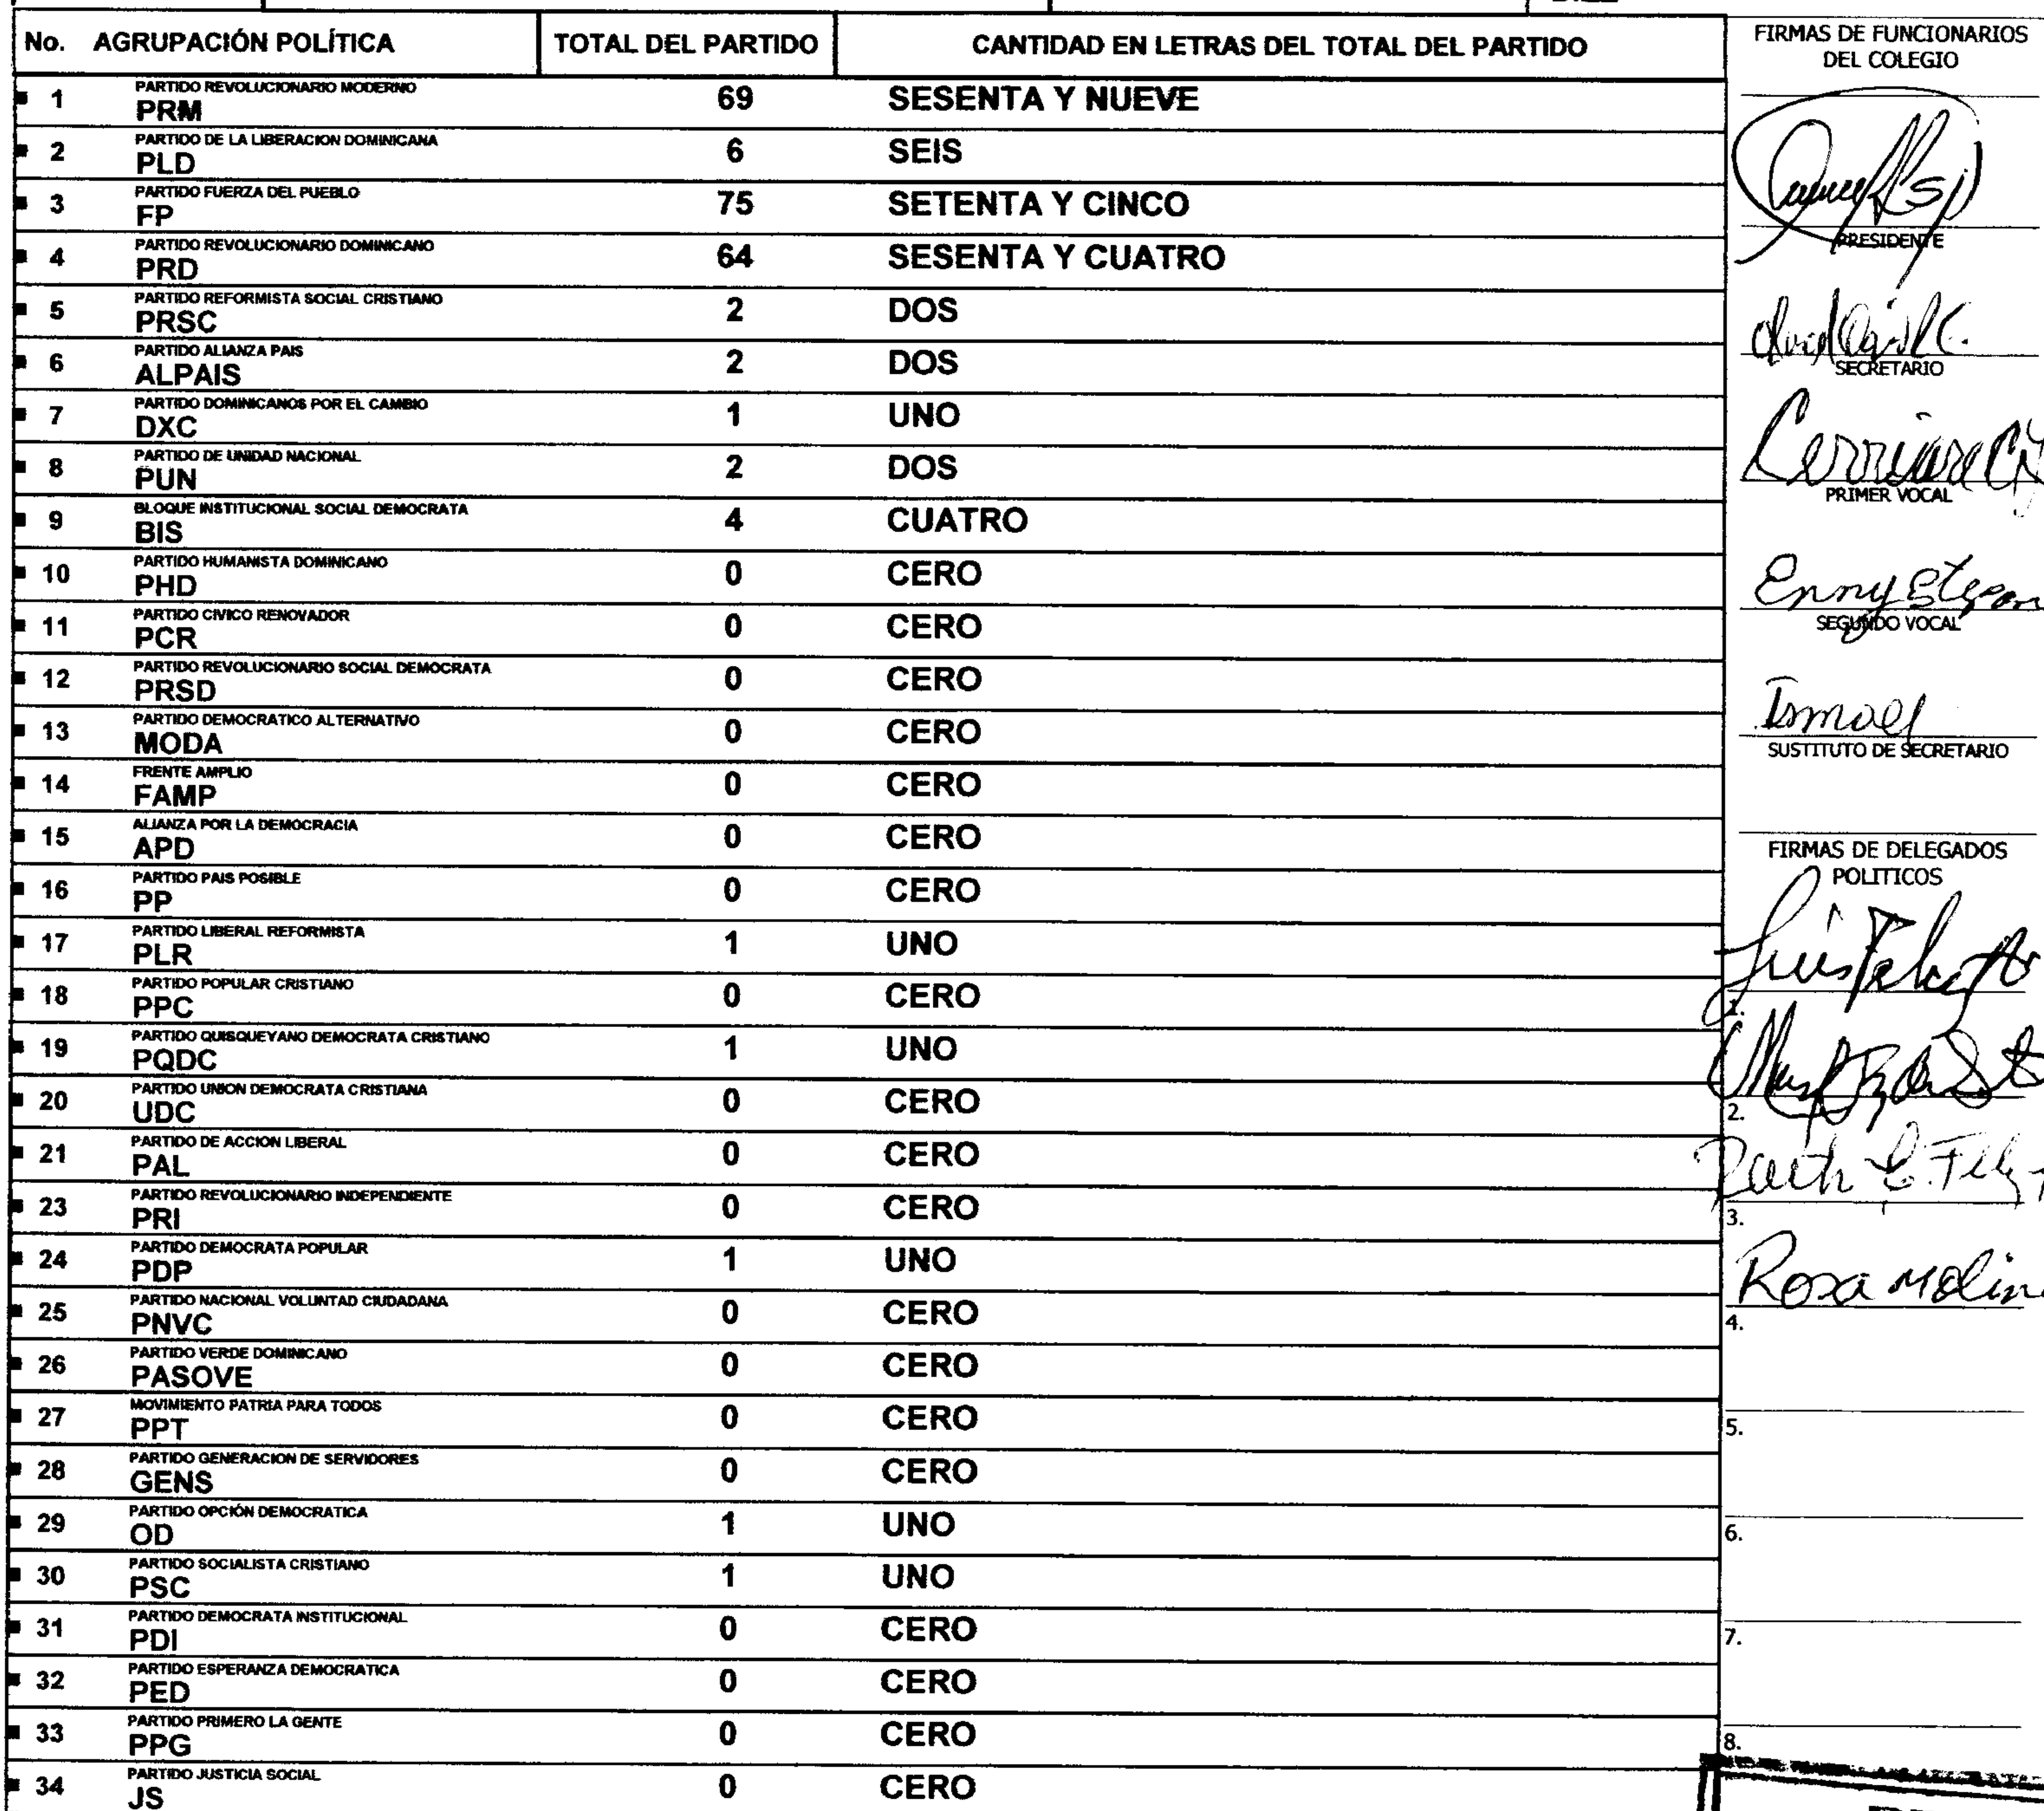 No. AGRUPACIÓN POLÍTICA TOTAL DEL PARTIDO CANTIDAD EN LETRAS DEL TOTAL DEL PARTIDO
1 PARTIDO REVOLUCIONARIO MODERNO
PRM 69 SESENTA Y NUEVE
2 PARTIDO DE LA LIBERACION DOMINICANA
PLD 6 SEIS
3 PARTIDO FUERZA DEL PUEBLO
FP 75 SETENTA Y CINCO
4 PARTIDO REVOLUCIONARIO DOMINICANO
PRD 64 SESENTA Y CUATRO
5 PARTIDO REFORMISTA SOCIAL CRISTIANO
PRSC 2 DOS
6 PARTIDO ALIANZA PAIS
ALPAIS 2 DOS
7 PARTIDO DOMINICANOS POR EL CAMBIO
DXC 1 UNO
8 PARTIDO DE UNIDAD NACIONAL
PUN 2 DOS
9 BLOQUE INSTITUCIONAL SOCIAL DEMOCRATA
BIS 4 CUATRO
10 PARTIDO HUMANISTA DOMINICANO
PHD 0 CERO
11 PARTIDO CIVICO RENOVADOR
PCR 0 CERO
12 PARTIDO REVOLUCIONARIO SOCIAL DEMOCRATA
PRSD 0 CERO
13 PARTIDO DEMOCRATICO ALTERNATIVO
MODA 0 CERO
14 FRENTE AMPLIO
FAMP 0 CERO
15 ALIANZA POR LA DEMOCRACIA
APD 0 CERO
16 PARTIDO PAIS POSIBLE
PP 0 CERO
17 PARTIDO LIBERAL REFORMISTA
PLR 1 UNO
18 PARTIDO POPULAR CRISTIANO
PPC 0 CERO
19 PARTIDO QUISQUEYANO DEMOCRATA CRISTIANO
PQDC 1 UNO
20 PARTIDO UNION DEMOCRATA CRISTIANA
UDC 0 CERO
21 PARTIDO DE ACCION LIBERAL
PAL 0 CERO
23 PARTIDO REVOLUCIONARIO INDEPENDIENTE
PRI 0 CERO
24 PARTIDO DEMOCRATA POPULAR
PDP 1 UNO
25 PARTIDO NACIONAL VOLUNTAD CIUDADANA
PNVC 0 CERO
26 PARTIDO VERDE DOMINICANO
PASOVE 0 CERO
27 MOVIMIENTO PATRIA PARA TODOS
PPT 0 CERO
28 PARTIDO GENERACION DE SERVIDORES
GENS 0 CERO
29 PARTIDO OPCIÓN DEMOCRATICA
OD 1 UNO
30 PARTIDO SOCIALISTA CRISTIANO
PSC 1 UNO
31 PARTIDO DEMOCRATA INSTITUCIONAL
PDI 0 CERO
32 PARTIDO ESPERANZA DEMOCRATICA
PED 0 CERO
33 PARTIDO PRIMERO LA GENTE
PPG 0 CERO
34 PARTIDO JUSTICIA SOCIAL
JS 0 CERO
FIRMAS DE FUNCIONARIOS
DEL COLEGIO
PRESIDENTE
SECRETARIO
PRIMER VOCAL
Enny
SEGUNDO VOCAL
Ismael
SUSTITUTO DE SECRETARIO
FIRMAS DE DELEGADOS
POLITICOS
Luis
1.
2.
3.
Rosa Molina
4.
5.
6.
7.
8.